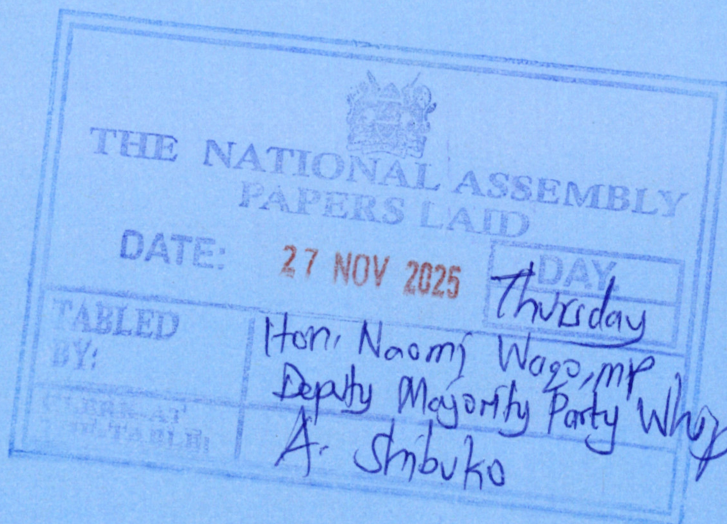 THE NATIONAL ASSEMBLY
PAPERS LAID
DATE: 27 NOV 2025 DAY.
Thursday
TABLED BY: Hon. Naomi Waqo, MP
Deputy Majority Party Whip
CLERK-AT THE-TABLE: A. Shibuko